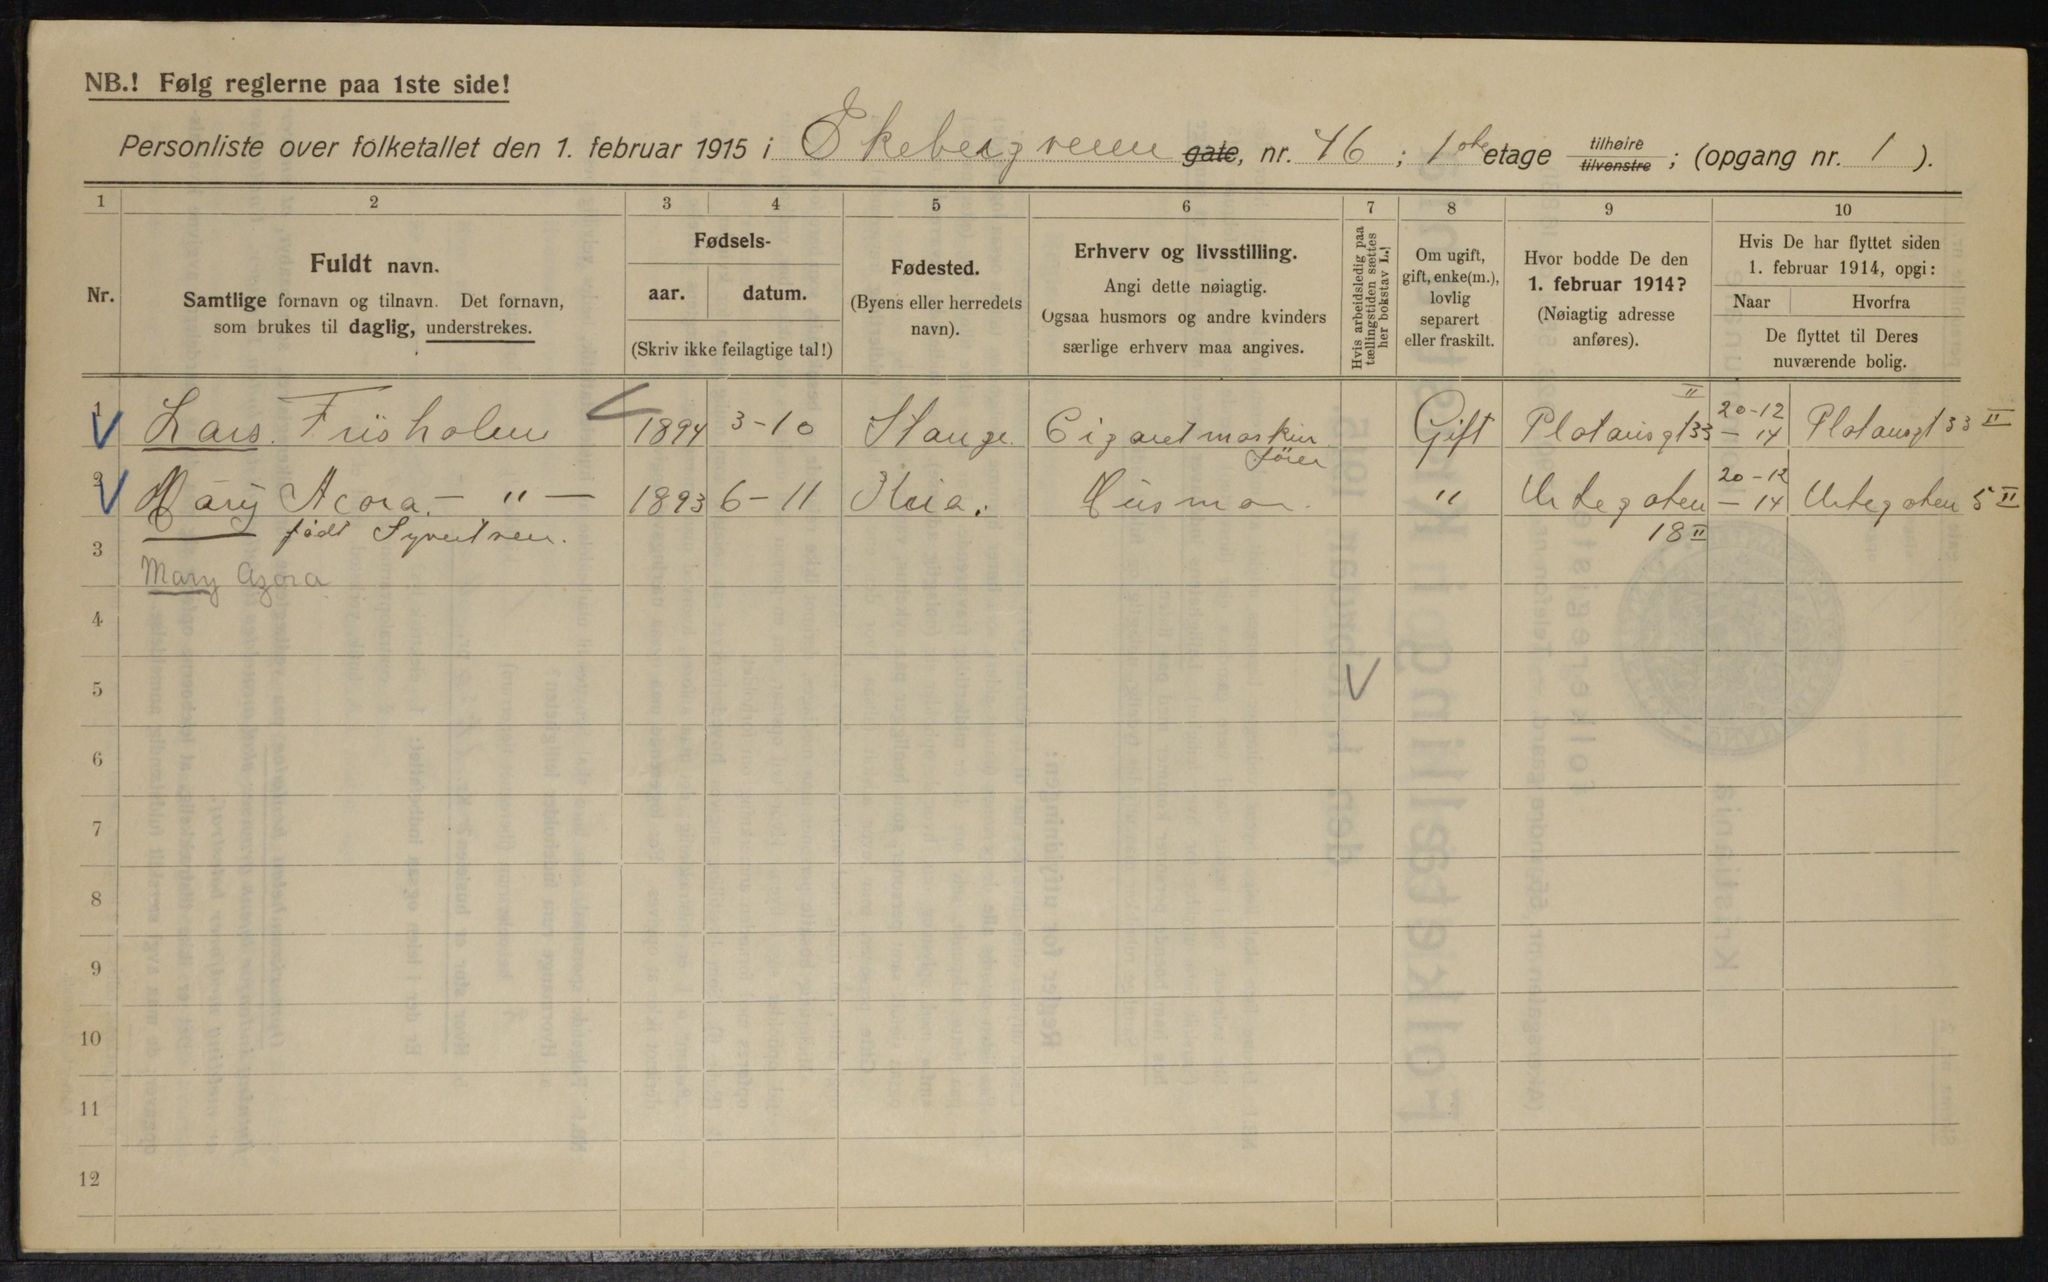 NB.! Følg reglerne paa 1ste side!
Personliste over folketallet den 1. februar 1915 i Ekebergveien gate, nr. 46 ; 1ste etage tilhøire tilvenstre ; (opgang nr. 1 ).
1 2 3 4 5 6 7 8 9 10
Nr.
Fuldt navn.
Samtlige fornavn og tilnavn. Det fornavn,
som brukes til daglig, understrekes.
Fødsels-
aar. datum.
(Skriv ikke feilagtige tal!)
Fødested.
(Byens eller herredets
navn).
Erhverv og livsstilling.
Angi dette nøiagtig.
Ogsaa husmors og andre kvinders
særlige erhverv maa angives.
Hvis arbeidsledig paa
tællingstiden sættes
her bokstav L.!
Om ugift,
gift, enke(m.),
lovlig
separert
eller fraskilt.
Hvor bodde De den
1. februar 1914?
(Nøiagtig adresse
anføres).
Hvis De har flyttet siden
1. februar 1914, opgi:
Naar Hvorfra
De flyttet til Deres
nuværende bolig.
1 Lars Friisholm 1894 3-10 Stange Cigaretmaskin Gift Platousgt 33 II 20-12 - 14 Platousgt 33 II
fører
2 Mary Acora — " — 1893 6-11 Kria. Husmor. " Urtegaten 20-12 - 14 Urtegaten 5 II
født Syvertsen. 18 II
3
Mary Azora
4
5
6
7
8
9
10
11
12